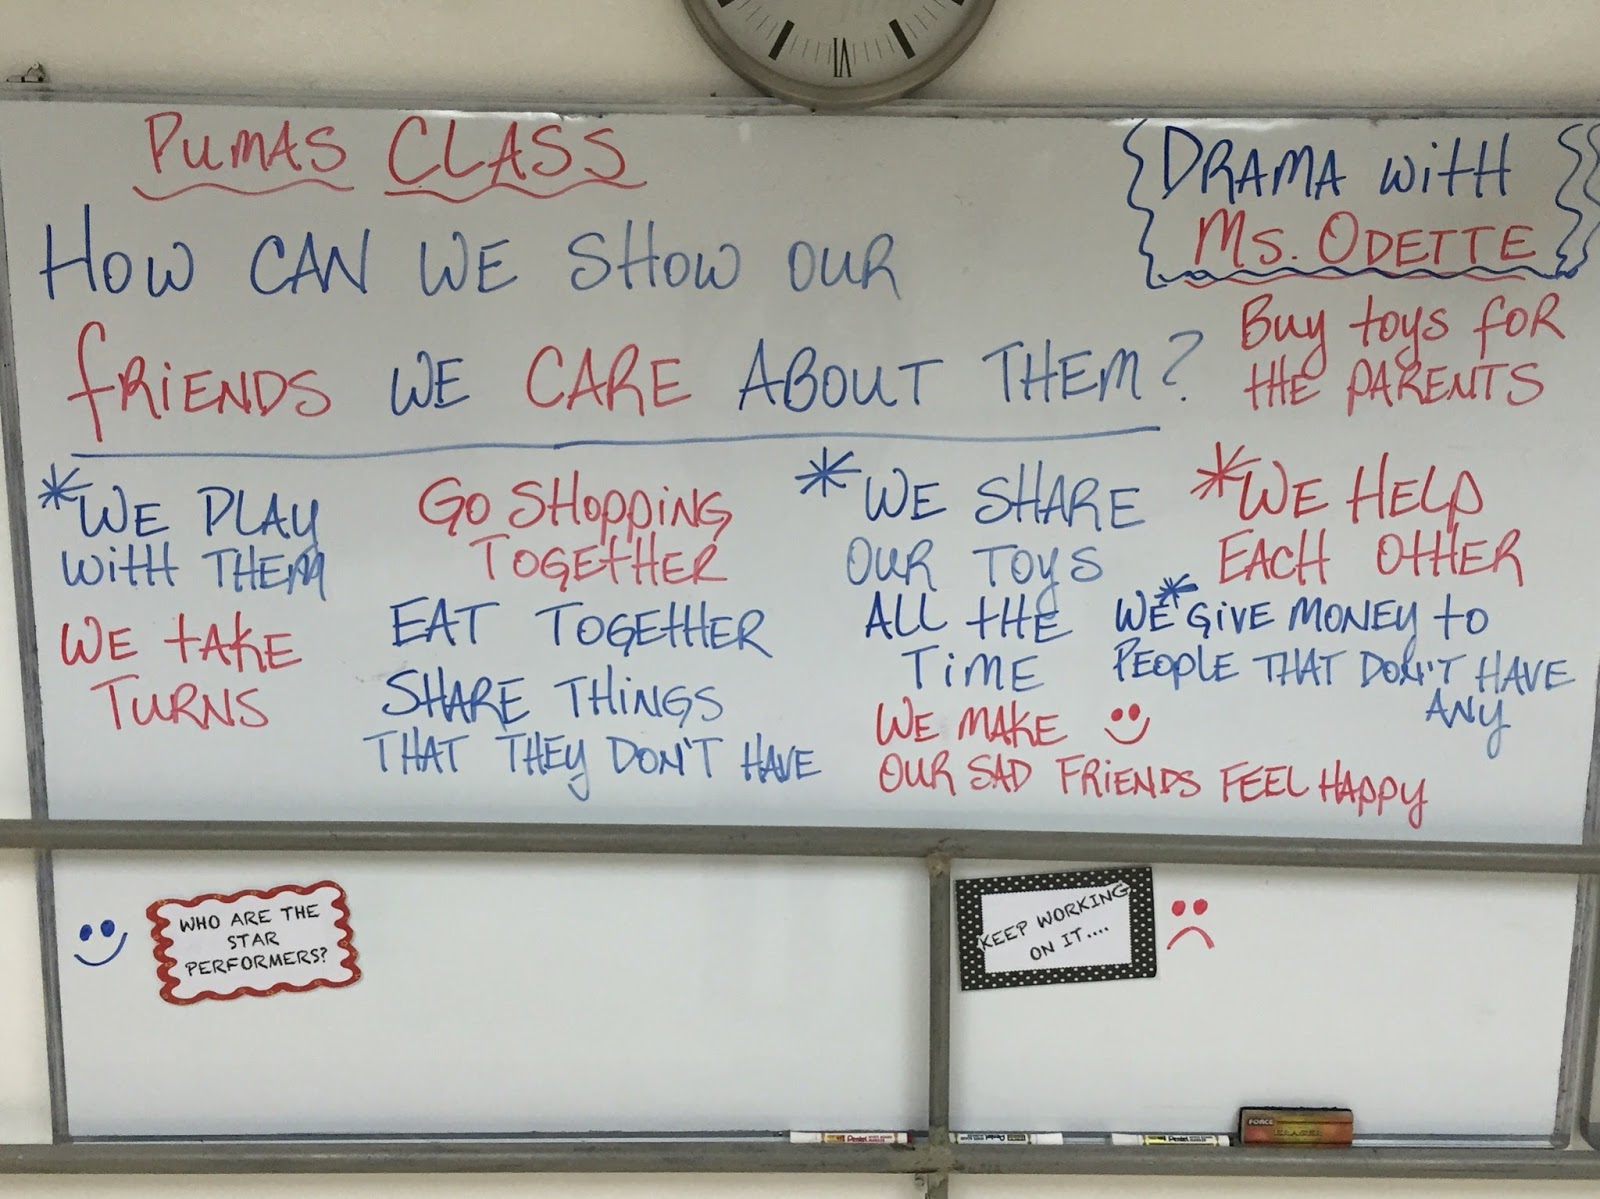 PUMAS CLASS
HOW CAN WE SHOW OUR
FRIENDS WE CARE ABOUT THEM?
DRAMA WITH
MS. ODETTE
BUY TOYS FOR
THE PARENTS
*WE PLAY
WITH THEM
WE TAKE
TURNS
GO SHOPPING
TOGETHER
EAT TOGETHER
SHARE THINGS
THAT THEY DON'T HAVE
*WE SHARE
OUR TOYS
ALL THE
TIME
WE MAKE
OUR SAD FRIENDS FEEL HAPPY
*WE HELP
EACH OTHER
*WE GIVE MONEY TO
PEOPLE THAT DON'T HAVE
ANY
WHO ARE THE
STAR
PERFORMERS?
KEEP WORKING
ON IT....
Pentel
Pentel
Pentel
FORCE
VI